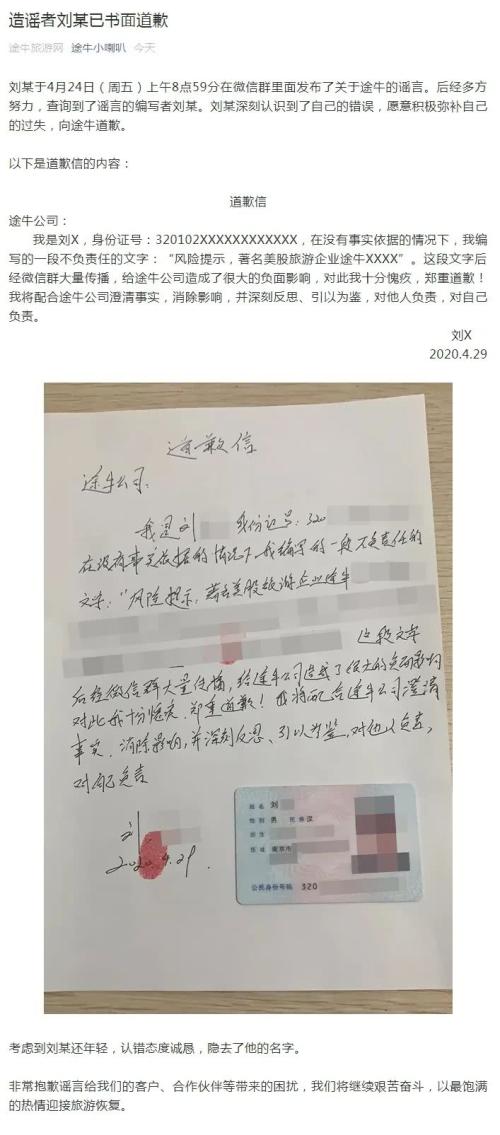 造谣者刘某已书面道歉
途牛旅游网 途牛小喇叭 今天
刘某于4月24日（周五）上午8点59分在微信群里面发布了关于途牛的谣言。后经多方
努力，查询到了谣言的编写者刘某。刘某深刻认识到了自己的错误，愿意积极弥补自己
的过失，向途牛道歉。
以下是道歉信的内容：
道歉信
途牛公司：
我是刘X，身份证号：320102XXXXXXXXXXXX，在没有事实依据的情况下，我编
写的一段不负责任的文字：“风险提示，著名美股旅游企业途牛XXXX”。这段文字后
经微信群大量传播，给途牛公司造成了很大的负面影响，对此我十分愧疚，郑重道歉！
我将配合途牛公司澄清事实，消除影响，并深刻反思、引以为鉴，对他人负责，对自己
负责。
刘X
2020.4.29
道歉信
途牛公司：
我是刘 身份证号：320
在没有事实依据的情况下，我编写的一段不负责任的
文字：“风险提示，著名美股旅游企业途牛
这段文字
后经微信群大量传播，给途牛公司造成了很大的负面影响
对此我十分愧疚，郑重道歉！我将配合途牛公司澄清
事实，消除影响，并深刻反思、引以为鉴，对他人负责，
对自己负责
刘
2020.4.29
姓名 刘
性别 男 民族 汉
出生
住址 南京市
公民身份号码 320
考虑到刘某还年轻，认错态度诚恳，隐去了他的名字。
非常抱歉谣言给我们的客户、合作伙伴等带来的困扰，我们将继续艰苦奋斗，以最饱满
的热情迎接旅游恢复。